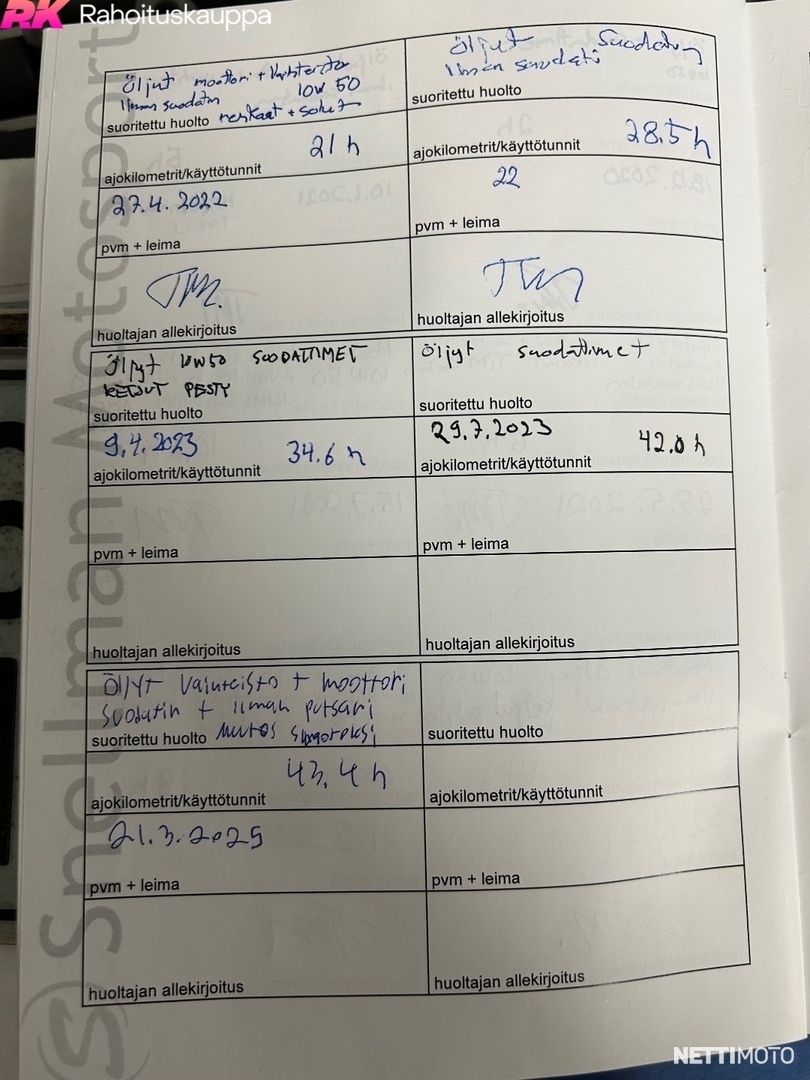 RK Rahoituskauppa
Snellman Motosport
Öljyt moottori + Vaihteisto
Ilman suodatin 10W 50
suoritettu huolto renkaat + solut
21 h
ajokilometrit/käyttötunnit
27.4. 2022
pvm + leima
huoltajan allekirjoitus
Öljyt Suodatin
Ilman suodati
suoritettu huolto
28.5 h
ajokilometrit/käyttötunnit
22
pvm + leima
huoltajan allekirjoitus
Öljyt 10W50 SUODATTIMET
KETJUT PESTY
suoritettu huolto
9.4.2023 34.6 h
ajokilometrit/käyttötunnit
pvm + leima
huoltajan allekirjoitus
Öljyt suodattimet
suoritettu huolto
29.7.2023 42.0 h
ajokilometrit/käyttötunnit
pvm + leima
huoltajan allekirjoitus
ÖljyT + moottori
suodatin + ilman putsari
suoritettu huolto Muutos
43.4 h
ajokilometrit/käyttötunnit
21.3.2025
pvm + leima
huoltajan allekirjoitus
suoritettu huolto
ajokilometrit/käyttötunnit
pvm + leima
huoltajan allekirjoitus
NETTIMOTO